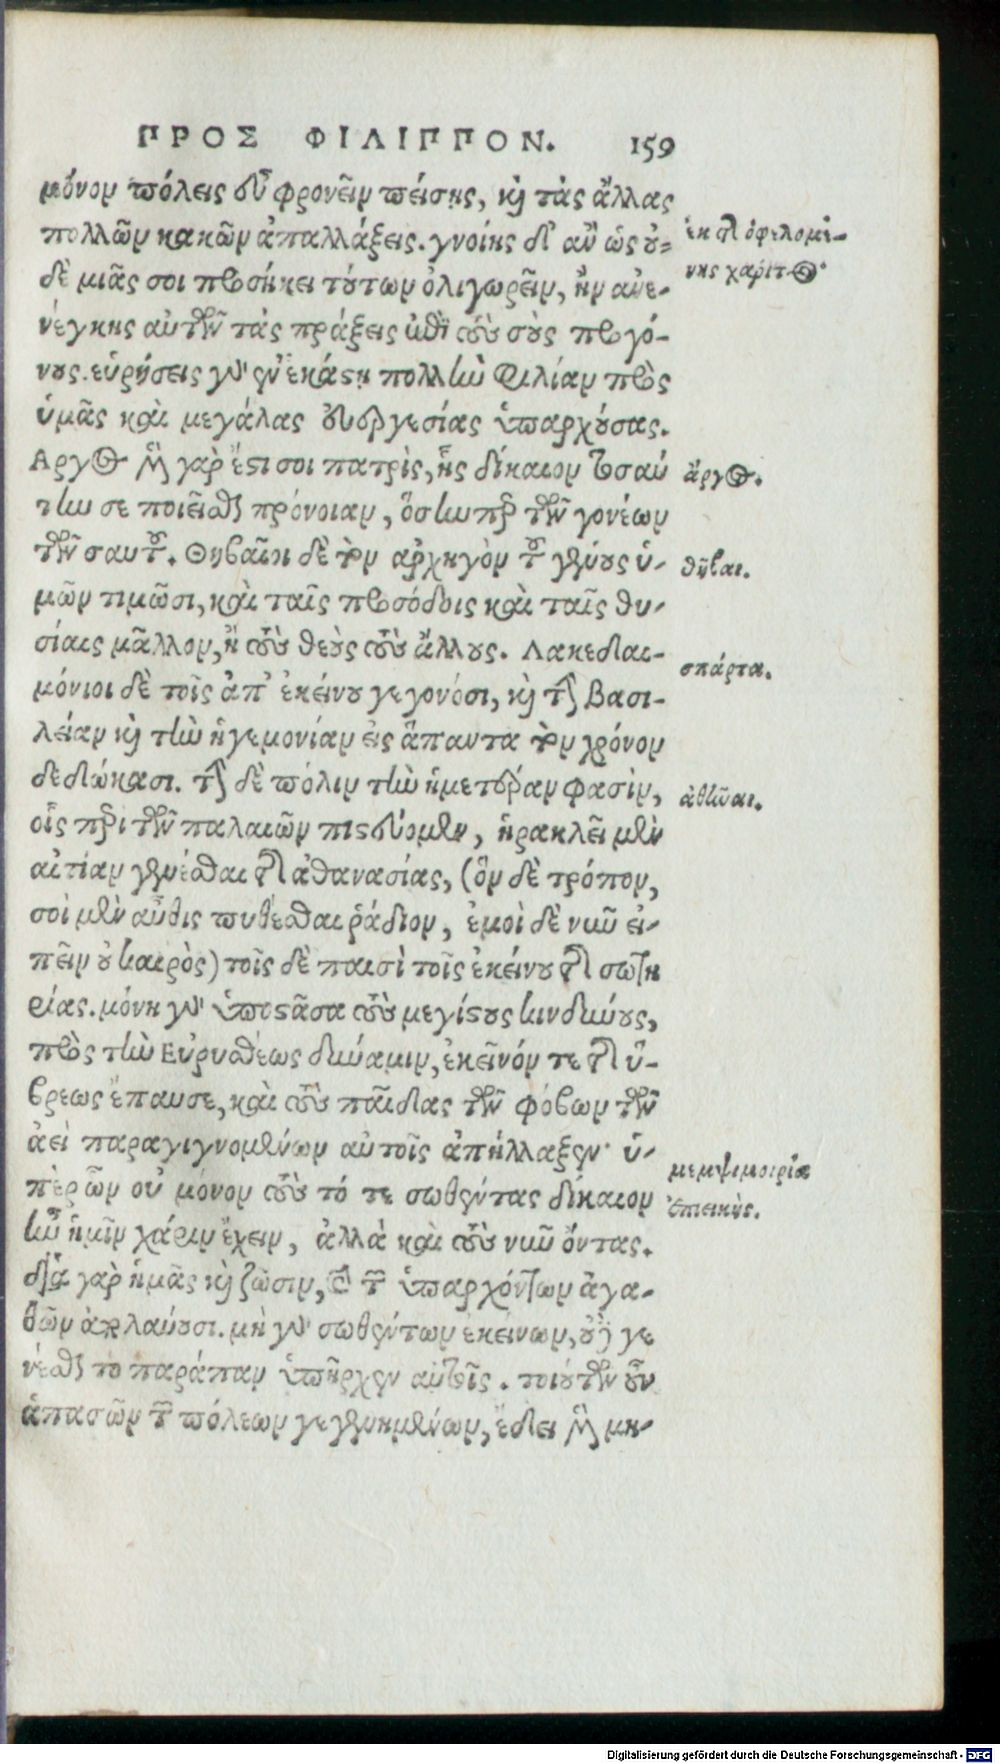 ΠΡΟΣ ΦΙΛΙΠΠΟΝ. 159
μόνον πόλεις εὖ φρονεῖν πείσῃς, καὶ τὰς ἄλλας
πολλῶν κακῶν ἀπαλλάξεις. γνοίης δ' ἂν ὡς οὐ-
δὲ μιᾶς σοι προσήκει τούτων ὀλιγωρεῖν, ἢν ἀνε-
νέγκῃς αὐτῶν τὰς πράξεις ἐπὶ τοὺς σοὺς προγό-
νους. εὑρήσεις γὰρ ἐν ἑκάστῃ πολλὴν φιλίαν πρὸς
ὑμᾶς καὶ μεγάλας εὐεργεσίας ὑπαρχούσας.
Αργος μὲν γάρ ἐστι σοι πατρὶς, ἧς δίκαιον τοσαύ
την σε ποιεῖσθαι πρόνοιαν, ὅσην περ τῶν γονέων
τῶν σαυτοῦ. Θηβαῖοι δὲ τὸν ἀρχηγὸν τοῦ γένους ὑ-
μῶν τιμῶσι, καὶ ταῖς προσόδοις καὶ ταῖς θυ-
σίαις μᾶλλον, ἢ τοὺς θεοὺς τοὺς ἄλλους. Λακεδαι-
μόνιοι δὲ τοῖς ἀπ' ἐκείνου γεγονόσι, καὶ τὴν βασι-
λείαν καὶ τὴν ἡγεμονίαν εἰς ἅπαντα τὸν χρόνον
δεδώκασι. τὴν δὲ πόλιν τὴν ἡμετέραν φασὶν,
οἷς περὶ τῶν παλαιῶν πιστεύομεν, ἡρακλεῖ μὲν
αἰτίαν γενέσθαι τῆς ἀθανασίας, (ὃν δὲ τρόπον,
σοὶ μὲν αὖθις πυθέσθαι ῥάδιον, ἐμοὶ δὲ νῦν εἰ-
πεῖν οὐ καιρὸς) τοῖς δὲ παισὶ τοῖς ἐκείνου τῆς σωτη
ρίας. μόνη γὰρ ὑποστᾶσα τοὺς μεγίστους κινδύνους,
πρὸς τὴν Εὐρυσθέως δύναμιν, ἐκεῖνόν τε τῆς ὕ-
βρεως ἔπαυσε, καὶ τοὺς παῖδας τῶν φόβων τῶν
ἀεὶ παραγιγνομένων αὐτοῖς ἀπήλλαξεν· ὑ-
πὲρ ὧν οὐ μόνον τοὺς τό τε σωθέντας δίκαιον
ἦν ἡμῖν χάριν ἔχειν, ἀλλὰ καὶ τοὺς νῦν ὄντας.
διὰ γὰρ ἡμᾶς καὶ ζῶσιν, καὶ τῶν ὑπαρχόντων ἀγα-
θῶν ἀπολαύουσι. μὴ γὰρ σωθέντων ἐκείνων, οὐδὲ γε
νέσθαι το παράπαν ὑπῆρχεν αὐτοῖς. τοιούτων οὖν
ἁπασῶν τῶν πόλεων γεγενημένων, ἔδει μὲν μη-
ἐκ τῆς ὀφειλομέ-
νης χάριτος·
ἄργος.
θῆβαι.
σπάρτα.
ἀθῆναι.
μεμψιμοιρία
ἐπιεικὴς.
Digitalisierung gefördert durch die Deutsche Forschungsgemeinschaft - DFG